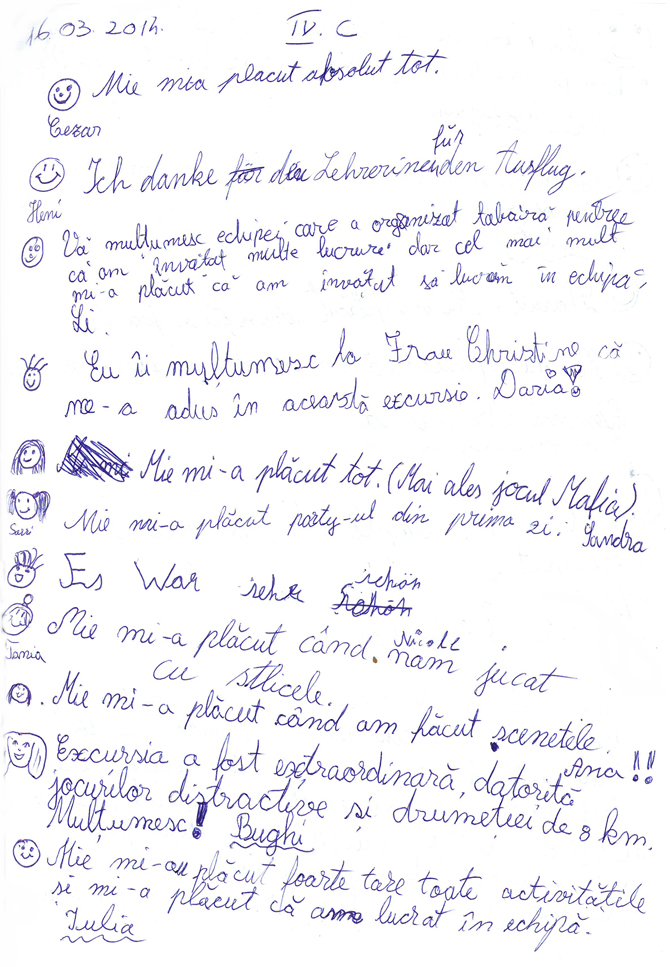 16.03.2014. IV. C
Mie mia placut absolut tot.
Cezar
für
Ich danke für die Lehrerinen den Ausflug.
Heni
Vă multumesc echipei care a organizat tabăiră pentree
că am învătat multe lucruri dar cel mai mult
mi-a plăcut că am învătut să lucrăm în echipă,
Li.
Eu îi mulțumesc la Frau Christine că
ne-a adus în această excursie. Daria!
Mie mi-a plăcut tot. (Mai ales jocul Mafia).
Susi
Mie mi-a plăcut party-ul din prima zi. Sandra
Es War sehr schön
schön
Mie mi-a plăcut când Nicole nam jucat
Tania
cu sticele.
Mie mi-a plăcut când am făcut scenetele.
Ana!!
Excursia a fost extraordinară, datorită
jocurilor distractive și drumeției de 8 km.
Mulțumesc! Bughi
Mie mi-au plăcut foarte tare toate activitățile
si mi-a plăcut că am lucrat în echipă.
Iulia